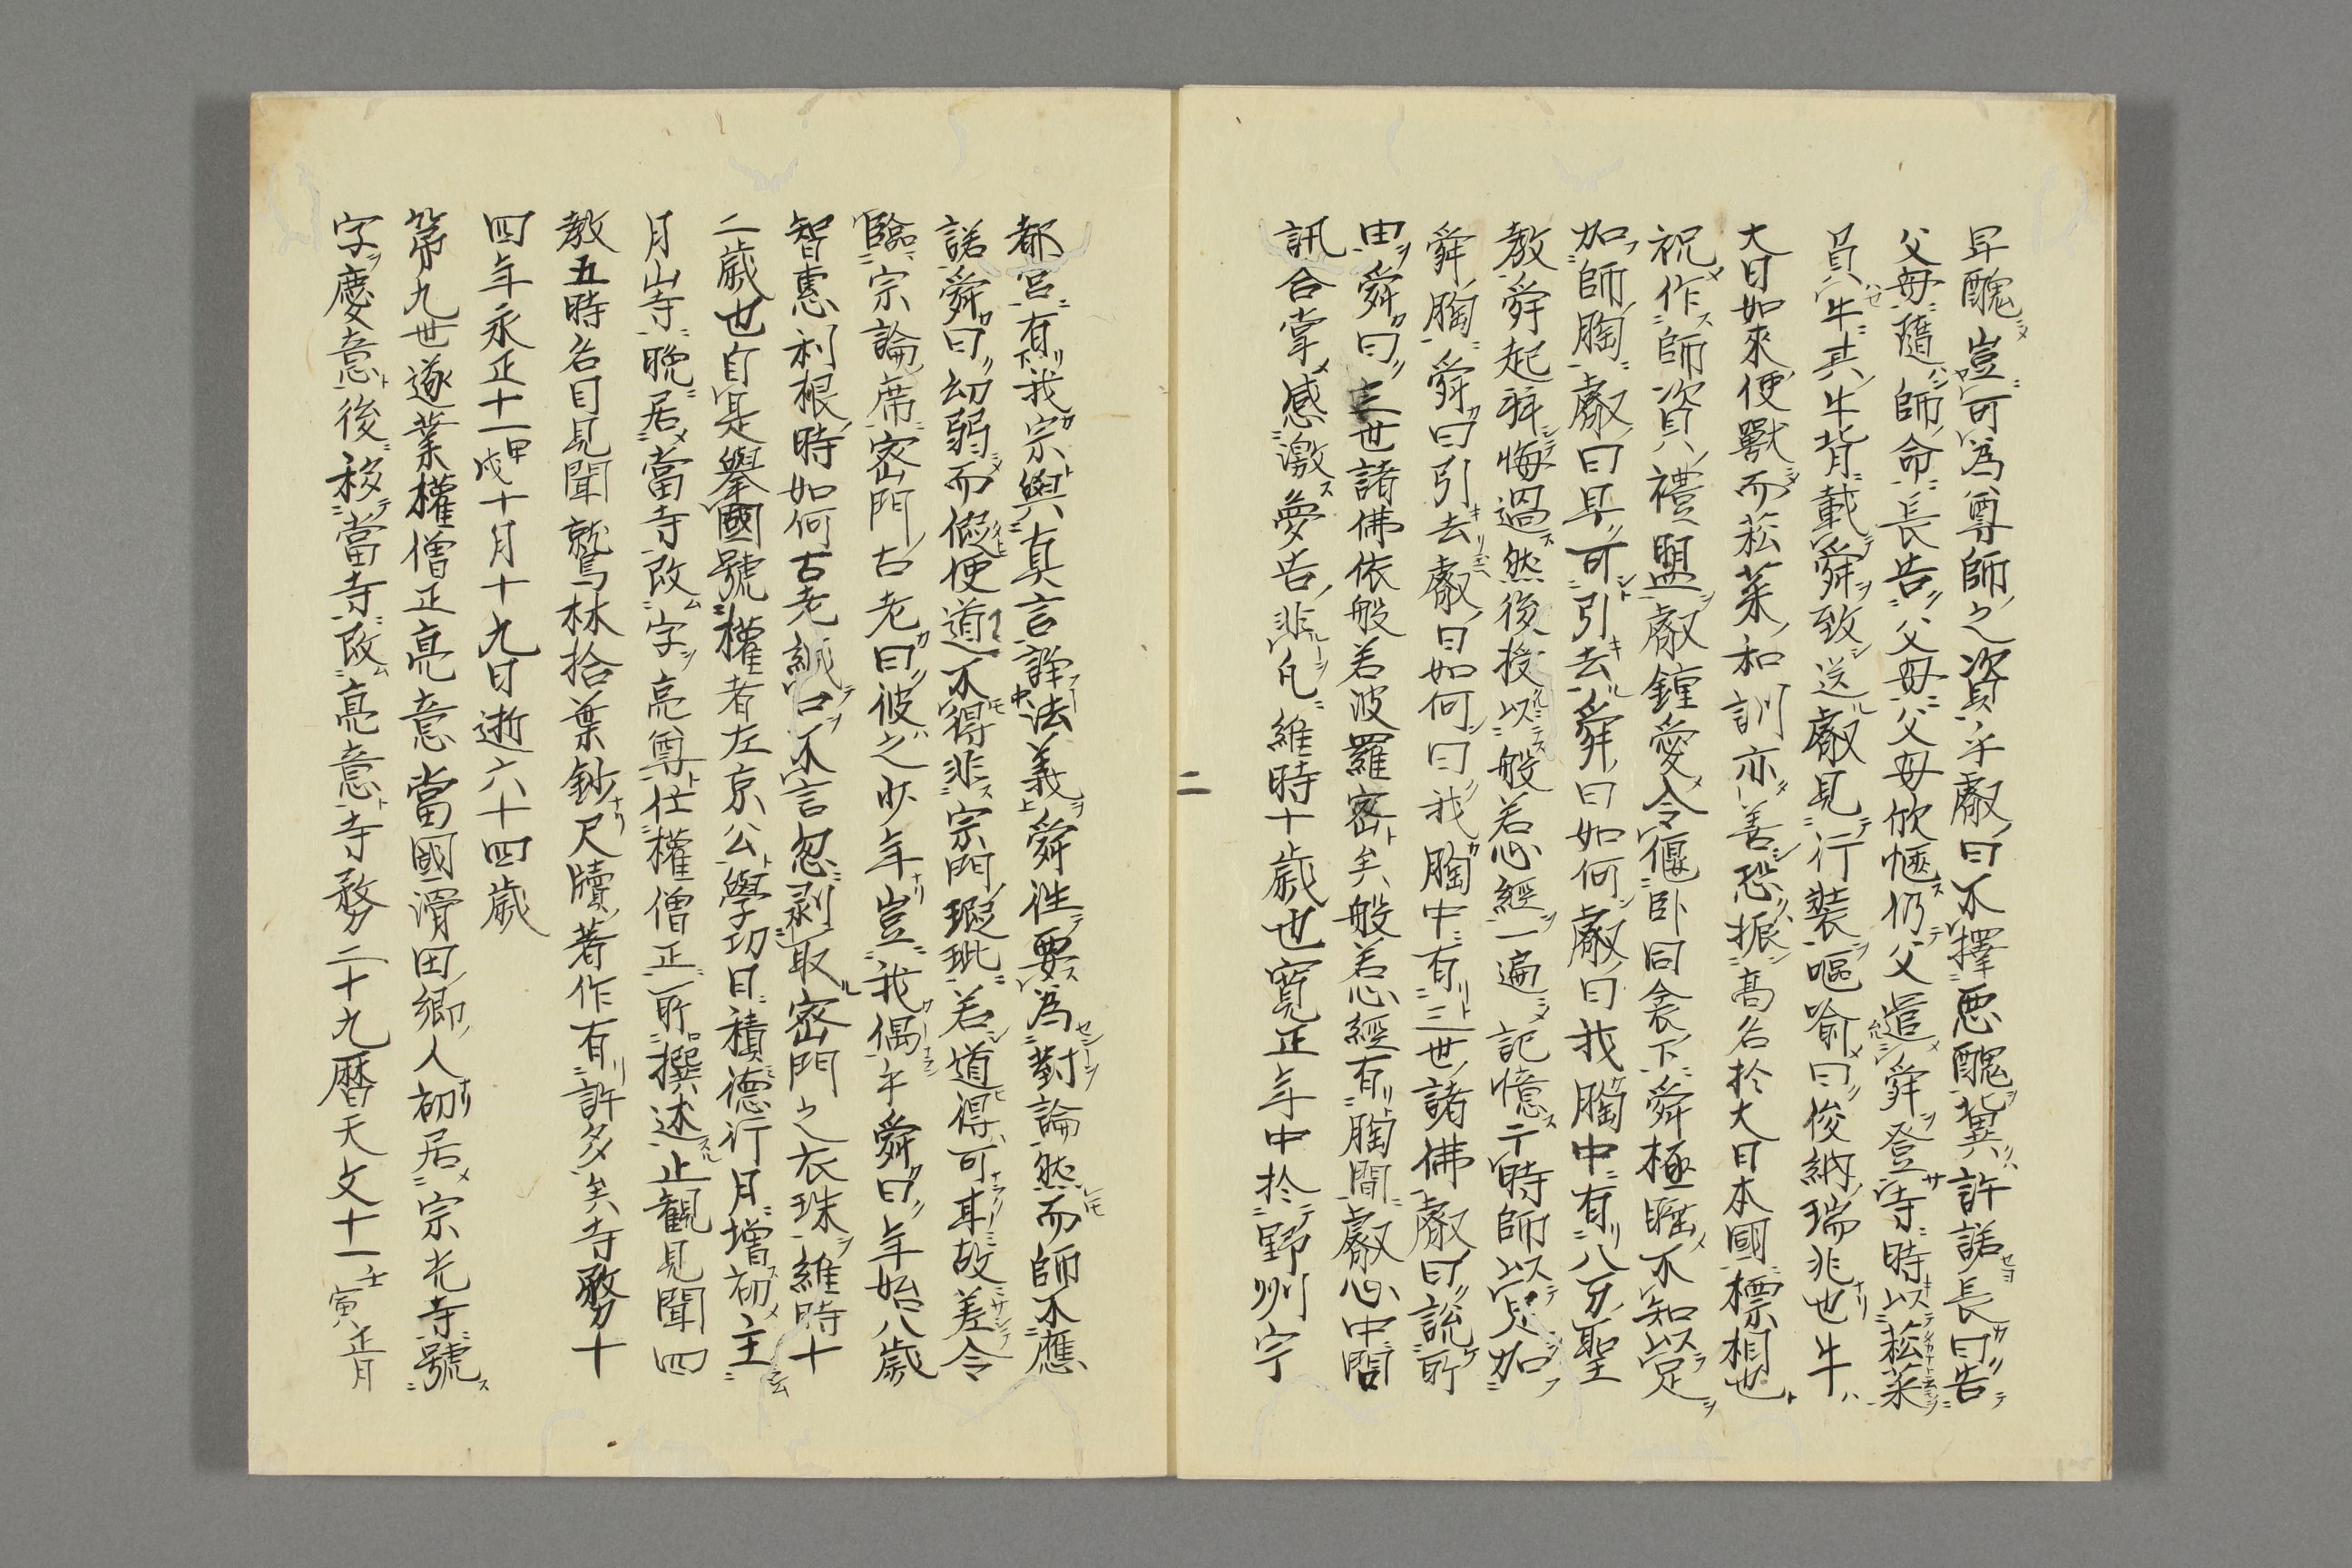 卑醜豈可為尊師之資乎叡曰不擇悪醜冀許諾長曰告
父母隨師命長告父母父母欣愜仍父追舜登寺時以菘菜
負牛其牛背載舜致送叡見行装嘔喩曰俊納瑞兆也牛
大日如來使獸而菘菜和訓亦善恐振髙名於大日本國標相也
祝作師資禮盟叡鐘愛令偃卧同衾下舜極睡不知以足
加師胸叡曰早可引去舜曰如何叡曰我胸中有八分聖
教舜起拜悔過然後授以般若心經一遍記憶于時師以足加
舜胸舜曰引去叡曰如何曰我胸中有三世諸佛叡曰説所
由舜曰三世諸佛依般若波羅密矣般若心經有胸間叡心中問
訊合掌感激夢告非凡維時十歳也寛正年中於野州宇
二
都宮有我宗與真言諍法義舜往要為對論然而師不應
諾舜曰幼弱而假使道不得非宗門瑕玼若道得可耳故差令
臨宗論席密門古老曰彼之少年豈我偶乎舜曰年始八歳
智恵利根時如何古老緘口不言忽剥取密門之衣珠維時十
二歳也自是擧國號權者左京公學功日積德行月增初主
月山寺晩居當寺改字亮尊任權僧正所撰述止観見聞四
教五時名目見聞鷲林拾葉鈔尺牘著作有許多矣寺務十
四年永正十一甲戌十月十九日逝六十四歳
第九世遂業權僧正亮意當國滑田郷人初居宗光寺號
字慶意後移當寺改亮意寺務二十九暦天文十一壬寅正月